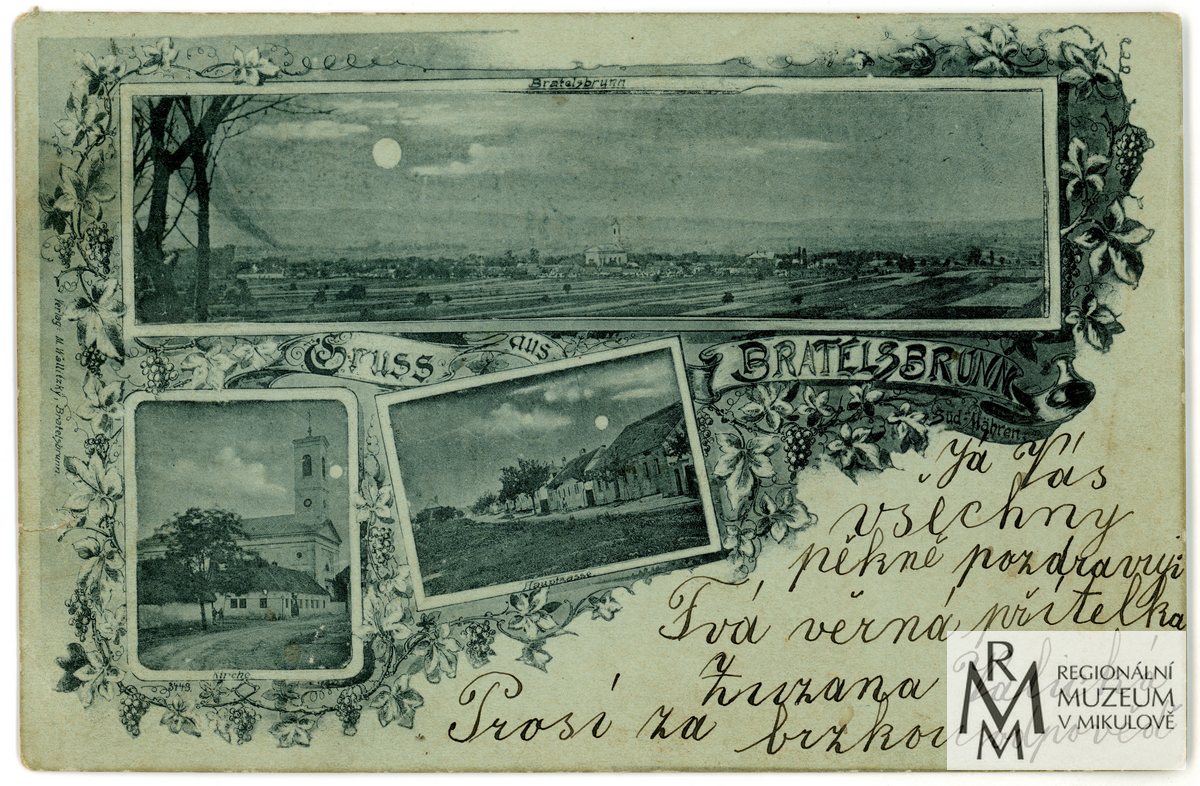 Bratelsbrunn
Gruss aus BRATELSBRUNN
Süd-Mähren
Verlag M. Müllitzky, Bratelsbrunn.
Hauptgasse
Kirche
3448.
Já Vás
všechny
pěkně pozdravuji
Tvá věrná přítelka
Zuzana
Prosí za brzkou odpověd
RMM
REGIONÁLNÍ
MUZEUM
V MIKULOVĚ